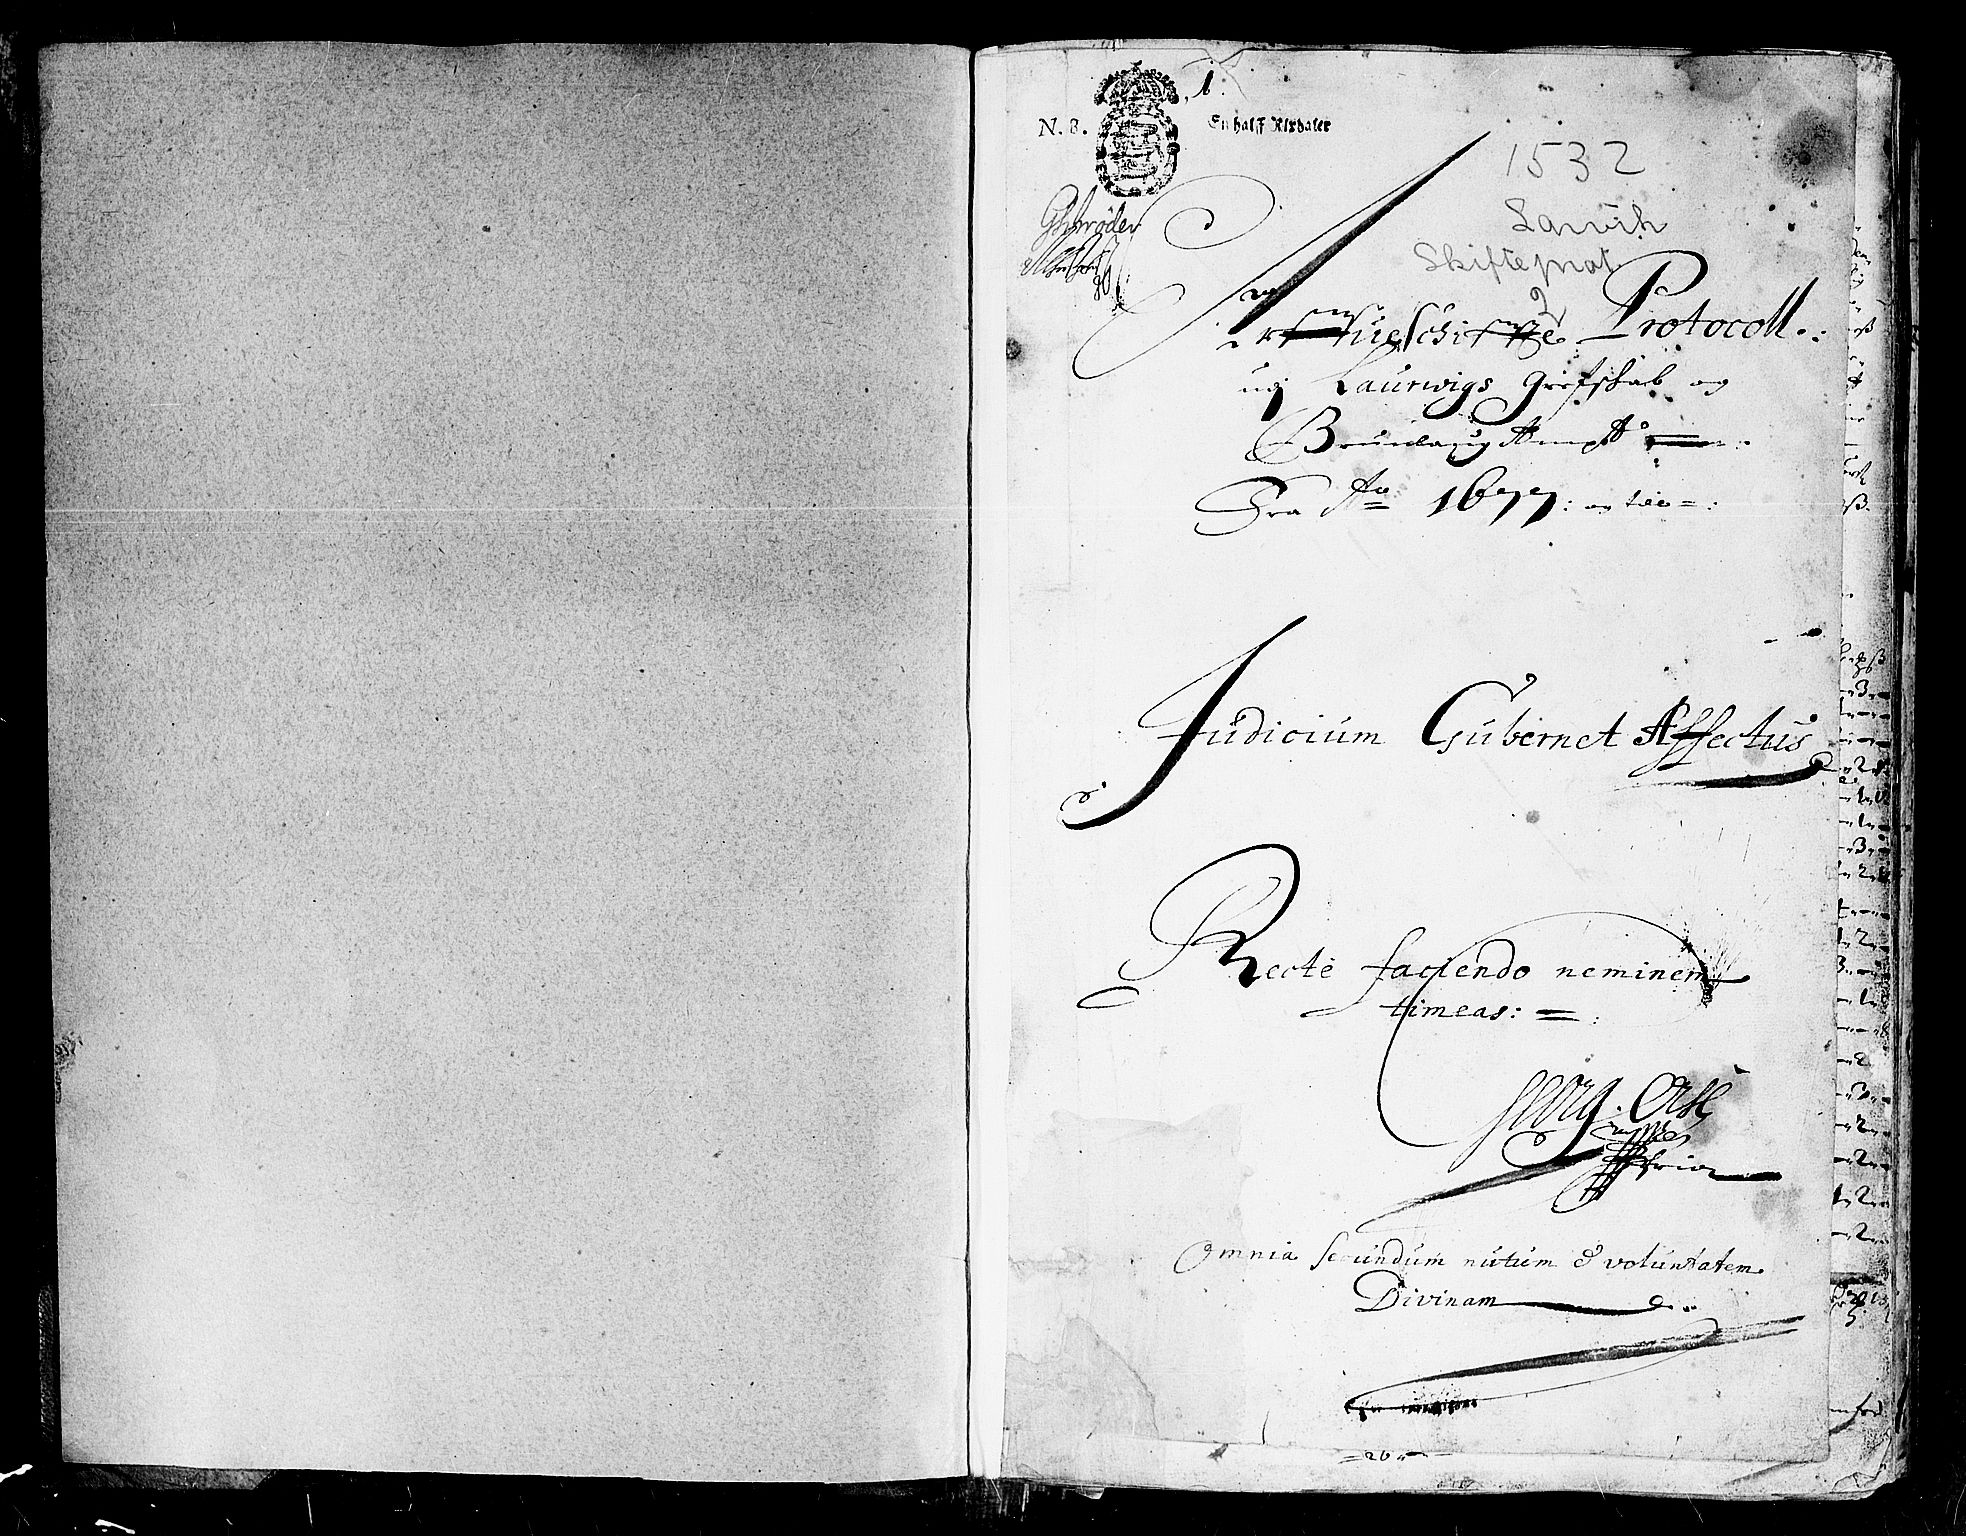 1.
N. 8. En halff Rixdaler
1532
Larvik
Skifteprot.
2
Schrøder
Arfueschiffte Protocoll.
udj Laurwigs Grefskab og
Brunlaugs Ampt
Fra Ao 1677: og till
Judicium Gubernet Affectus
Recte faciendo neminem
timeas:
Georg
Omnia secundum nutum & voluntatem
Divinam
26